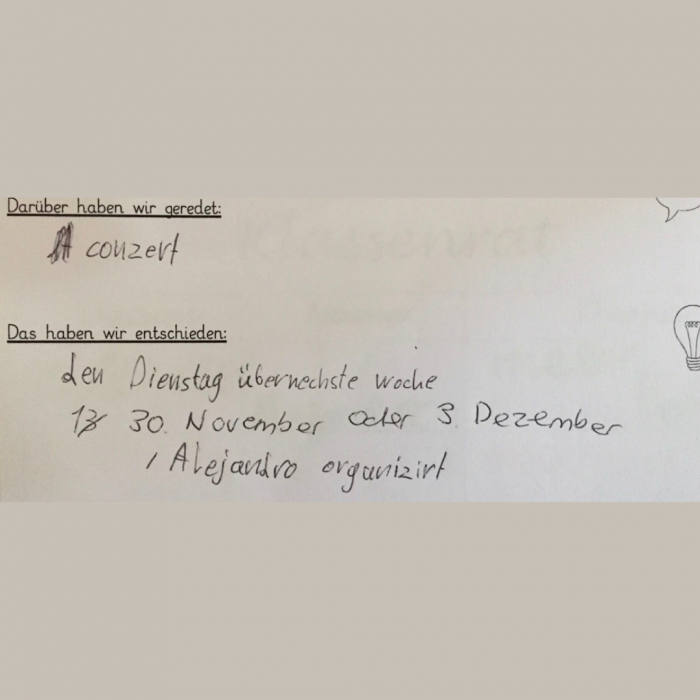 Darüber haben wir geredet:
conzert
Das haben wir entschieden:
den Dienstag übernechste woche
30. November oder 3. Dezember
, Alejandro organizirt